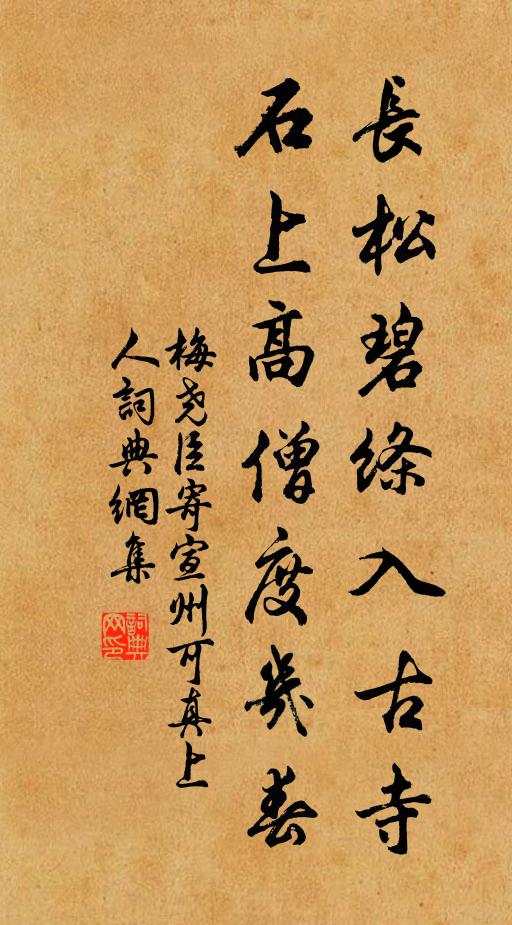 長松碧絛入古寺
石上高僧度幾春
梅堯臣寄宣州可真上
人詞典網集
詞典
网印